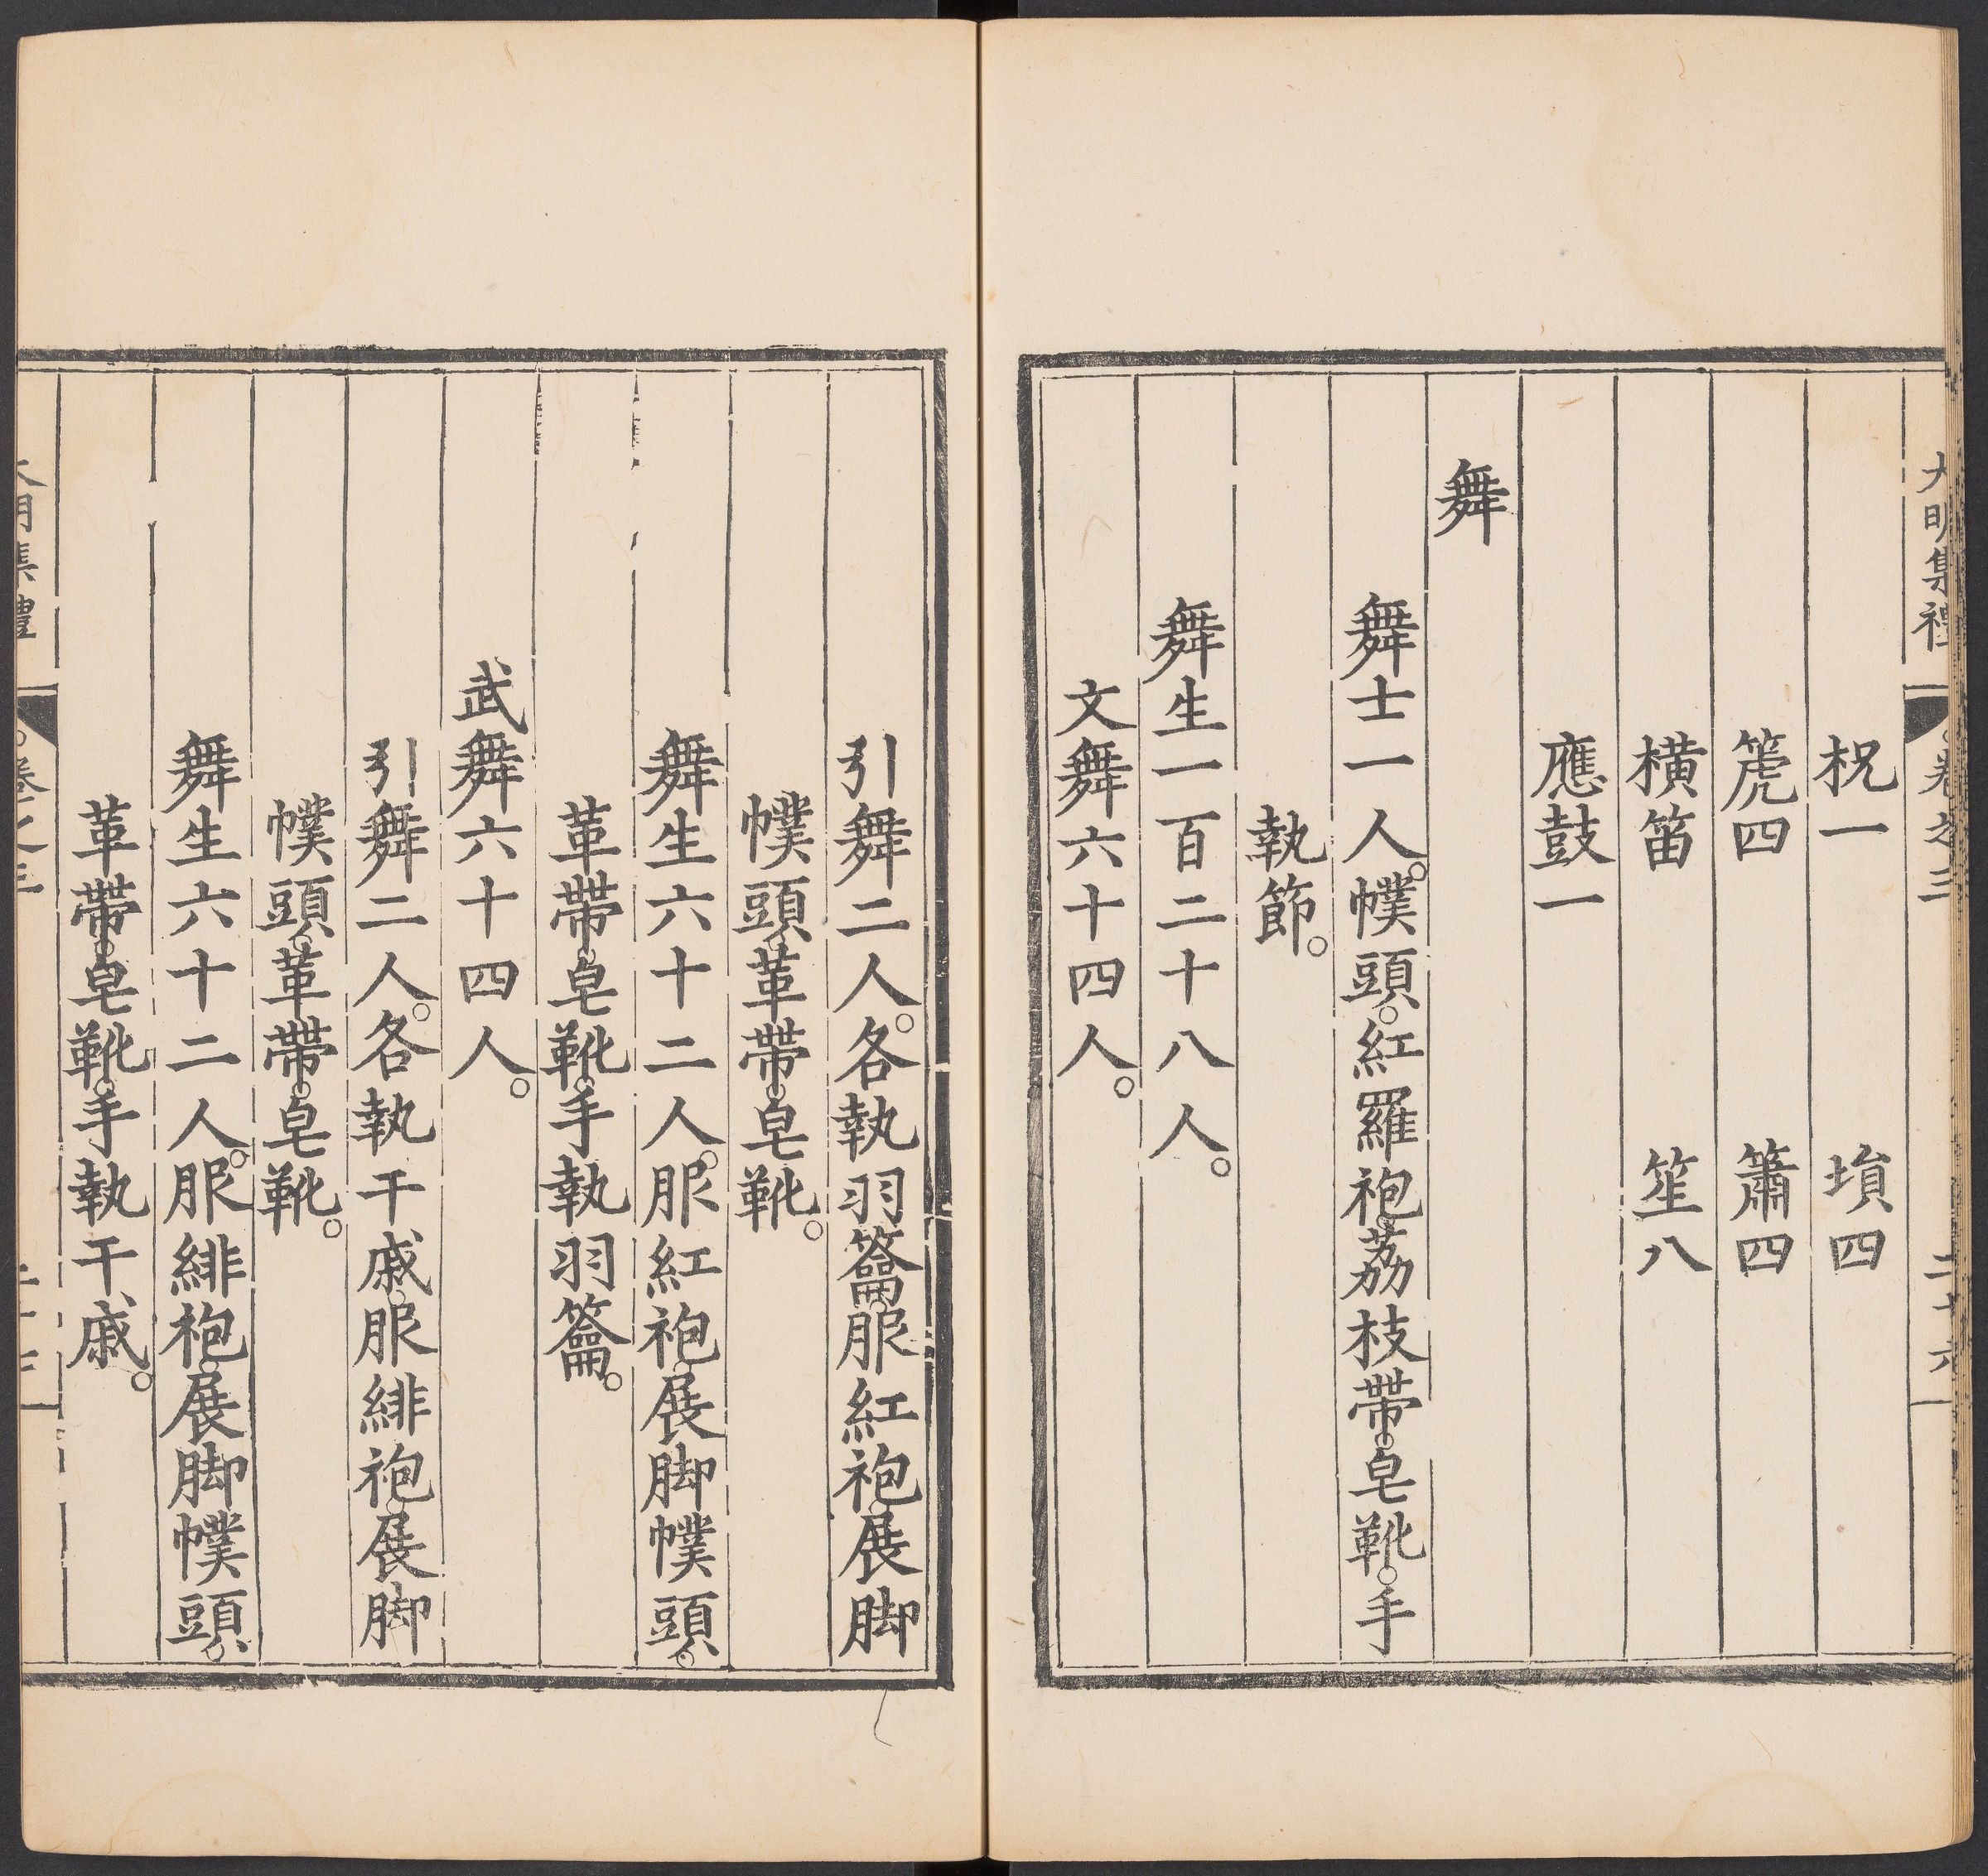 大明集禮 卷之三 二十六
柷一 塤四
箎四 簫四
橫笛 笙八
應鼓一
舞
舞士一人。幞頭。紅羅袍。荔枝帶。皂靴。手
執節。
舞生一百二十八人。
文舞六十四人。
引舞二人。各執羽籥。服紅袍。展脚
幞頭。革帶。皂靴。
舞生六十二人。服紅袍。展脚幞頭。
革帶。皂靴。手執羽籥。
武舞六十四人。
引舞二人。各執干戚。服緋袍。展脚
幞頭。革帶。皂靴。
舞生六十二人。服緋袍。展脚幞頭。
革帶。皂靴。手執干戚。
大明集禮 卷之三